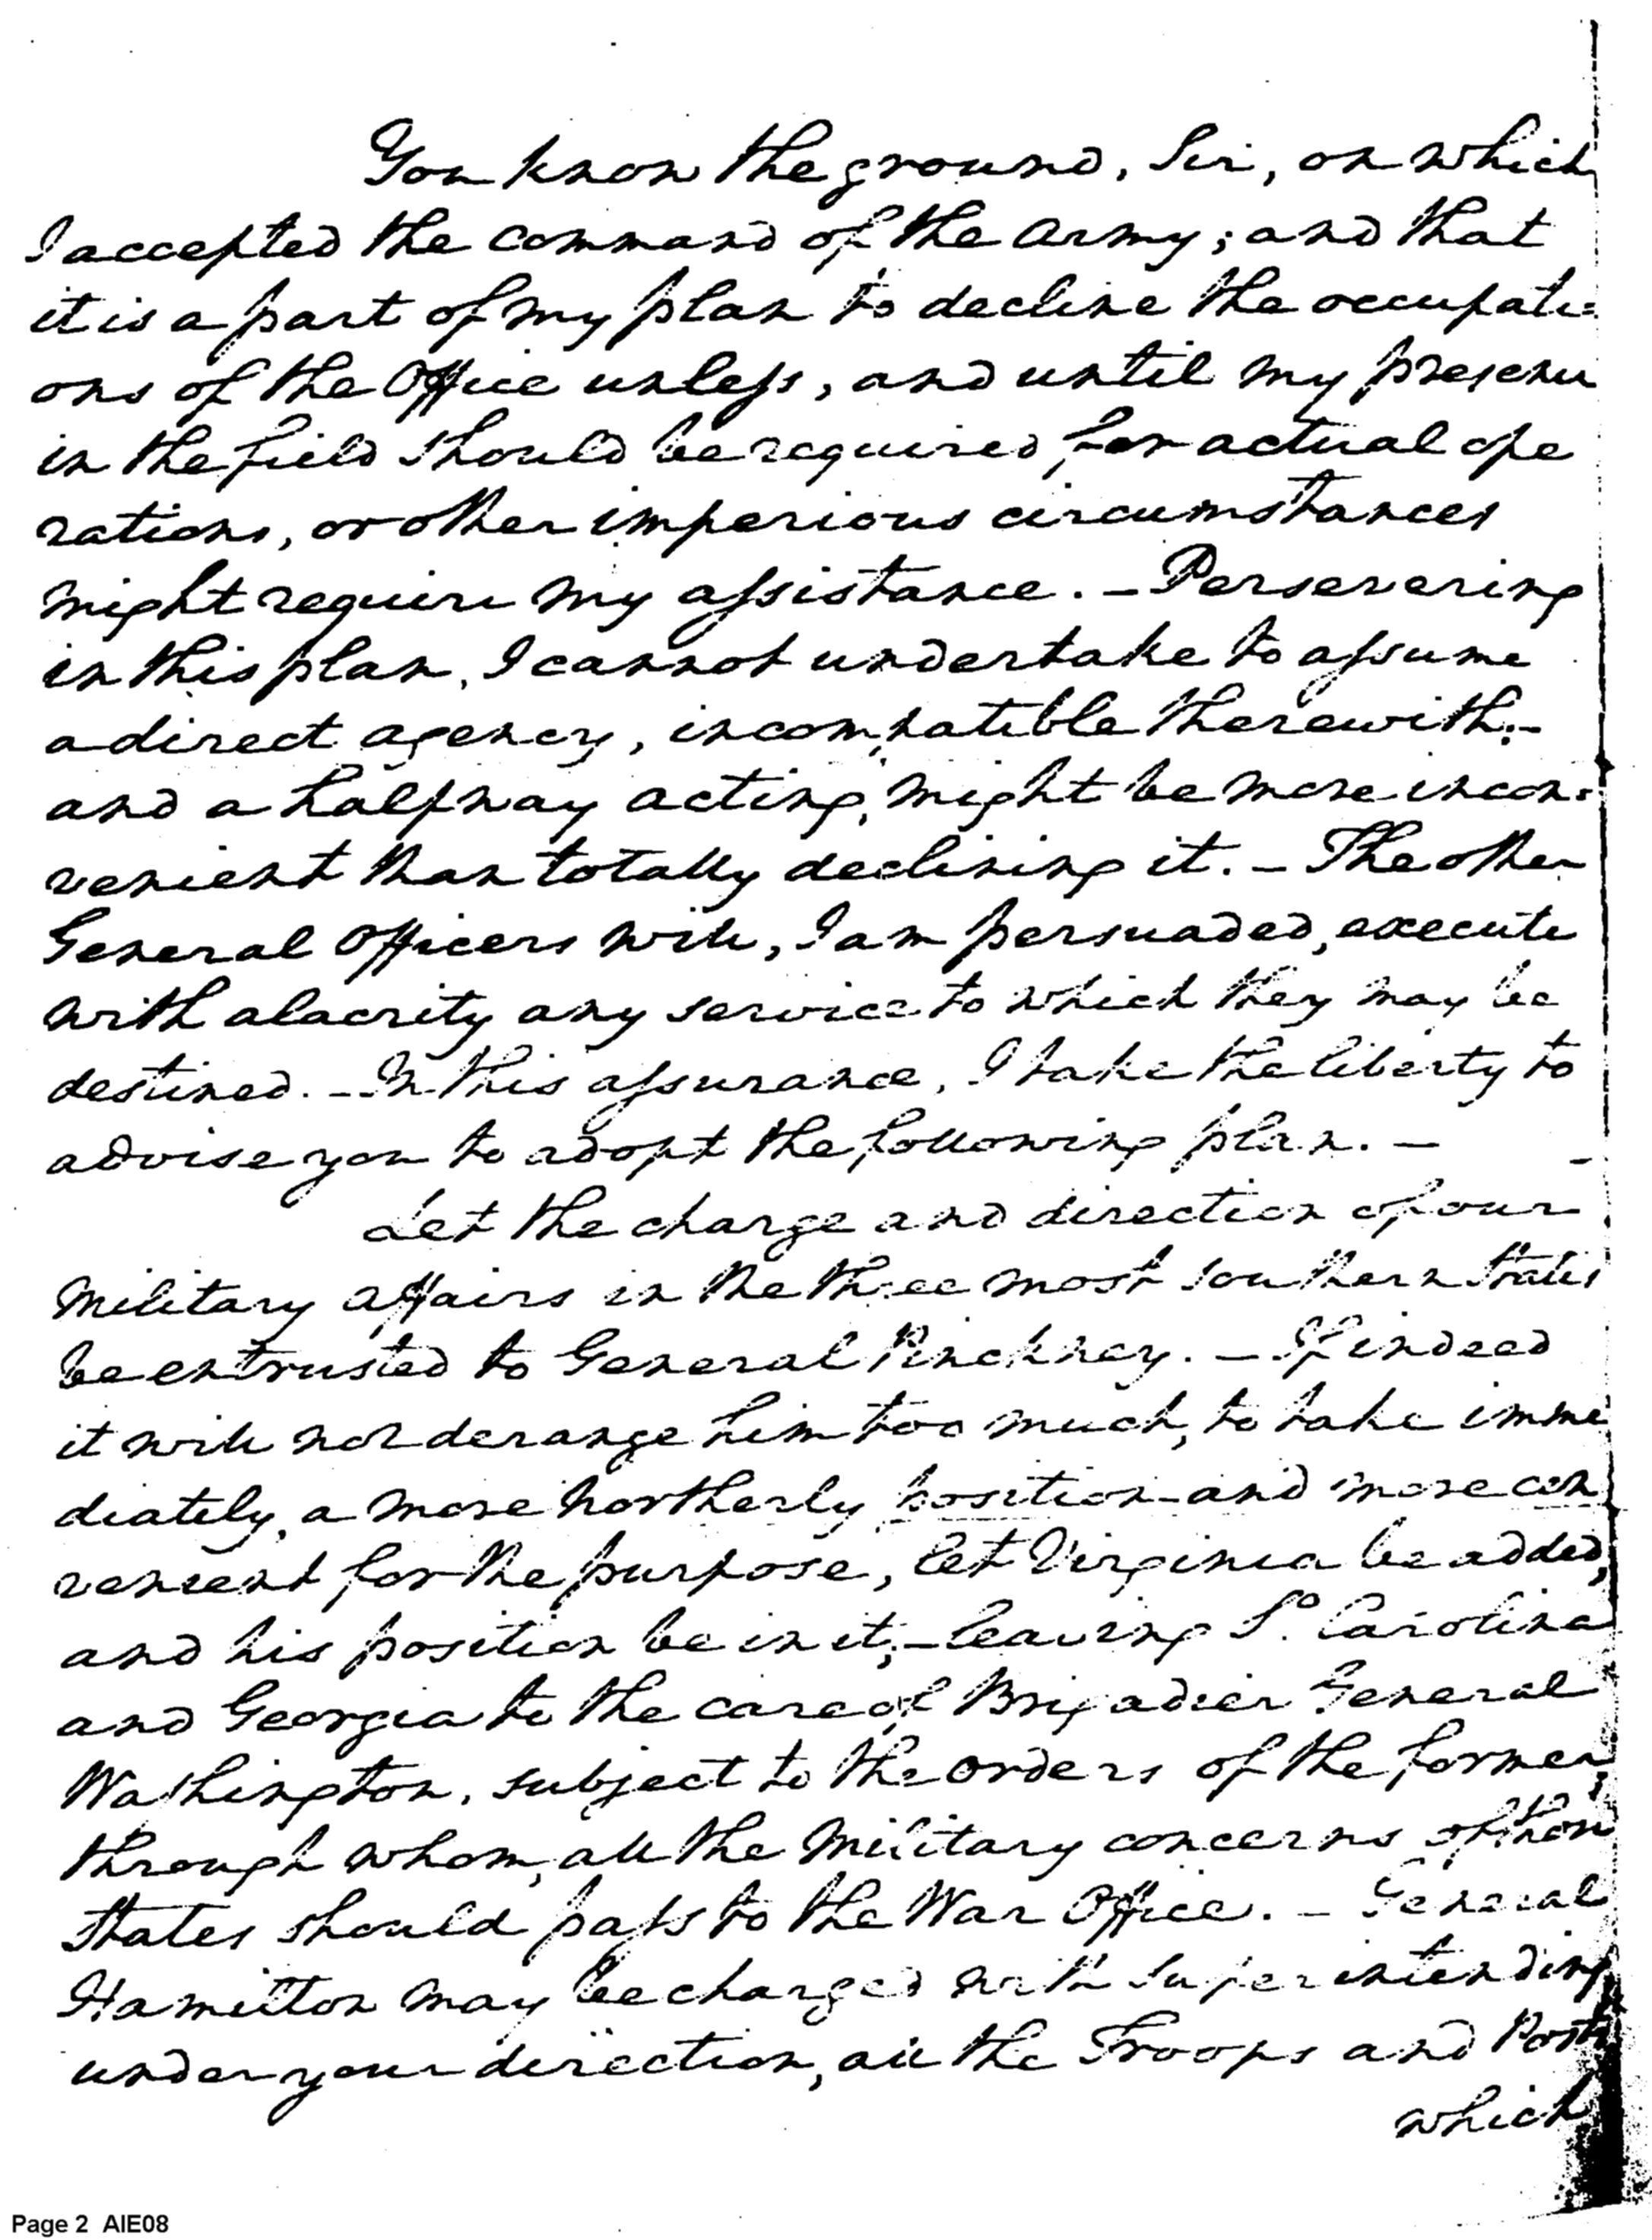 You know the ground, Sir, on which
I accepted the command of the Army; and that
it is a part of my plan to decline the occupati=
ons of the Office unless, and until my presence
in the field should be required for actual ope
rations, or other imperious circumstances
might require my assistance. – Persevering
in this plan, I cannot undertake to assume
a direct agency, incompatible therewith; –
and a halfway acting, might be more incon=
venient than totally declining it. – The other
General Officers will, I am persuaded, execute
with alacrity any service to which they may be
destined. – In this assurance, I take the liberty to
advise you to adopt the following plan. –
Let the charge and direction of our
Military affairs in the three most southern States
be entrusted to General Pinckney. – If indeed
it will not derange him too much, to take imme
diately, a more northerly position and more con
venient for the purpose, let Virginia be added,
and his position be in it; – leaving So. Carolina
and Georgia to the care of Brigadier General
Washington, subject to the orders of the former,
through whom, all the Military concerns of those
States should pass to the War Office. – General
Hamilton may be charged with superintending
under your direction, all the Troops and Posts
which
Page 2 AIE08